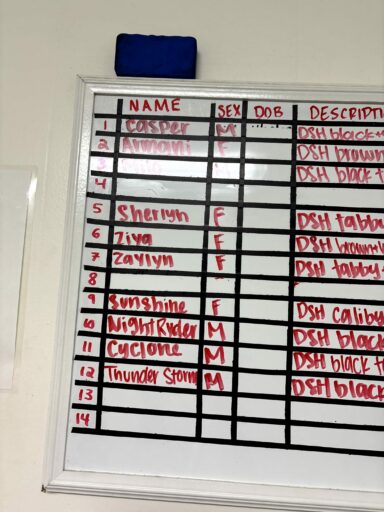 NAME SEX DOB DESCRIPTI
1 Casper M DSH black +
2 Armani F DSH brown
3 DSH black t
4
5 Sherlyn F DSH tabby
6 Ziya F DSH brown+
7 Zaylyn F DSH tabby
8
9 Sunshine F DSH caliby
10 NightRyder M DSH black
11 Cyclone M DSH black t
12 Thunder Storm M DSH black
13
14